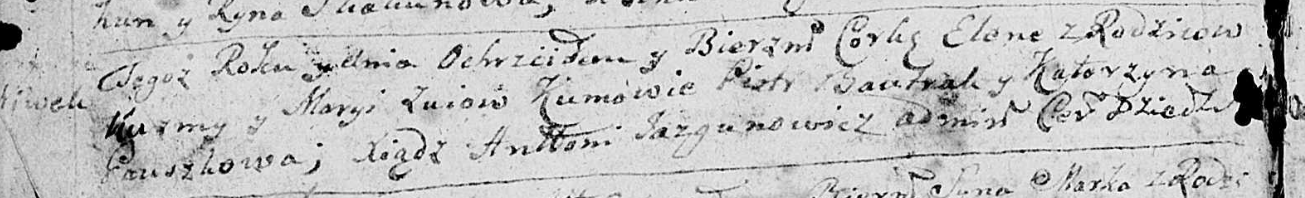 hun y Ryna
Tegoż Roku y dnia Ochrzciłem y Bierzm Corkę Elone z Rodzicow
Kuzmy y Maryi Zuiow Kumowie Piotr Bautruk y Katarzyna
Pruszkowa; Xiądz Anttoni Jazgunowicz admin Cer Dziedz
Bierzm Syna Marka z Rodzi